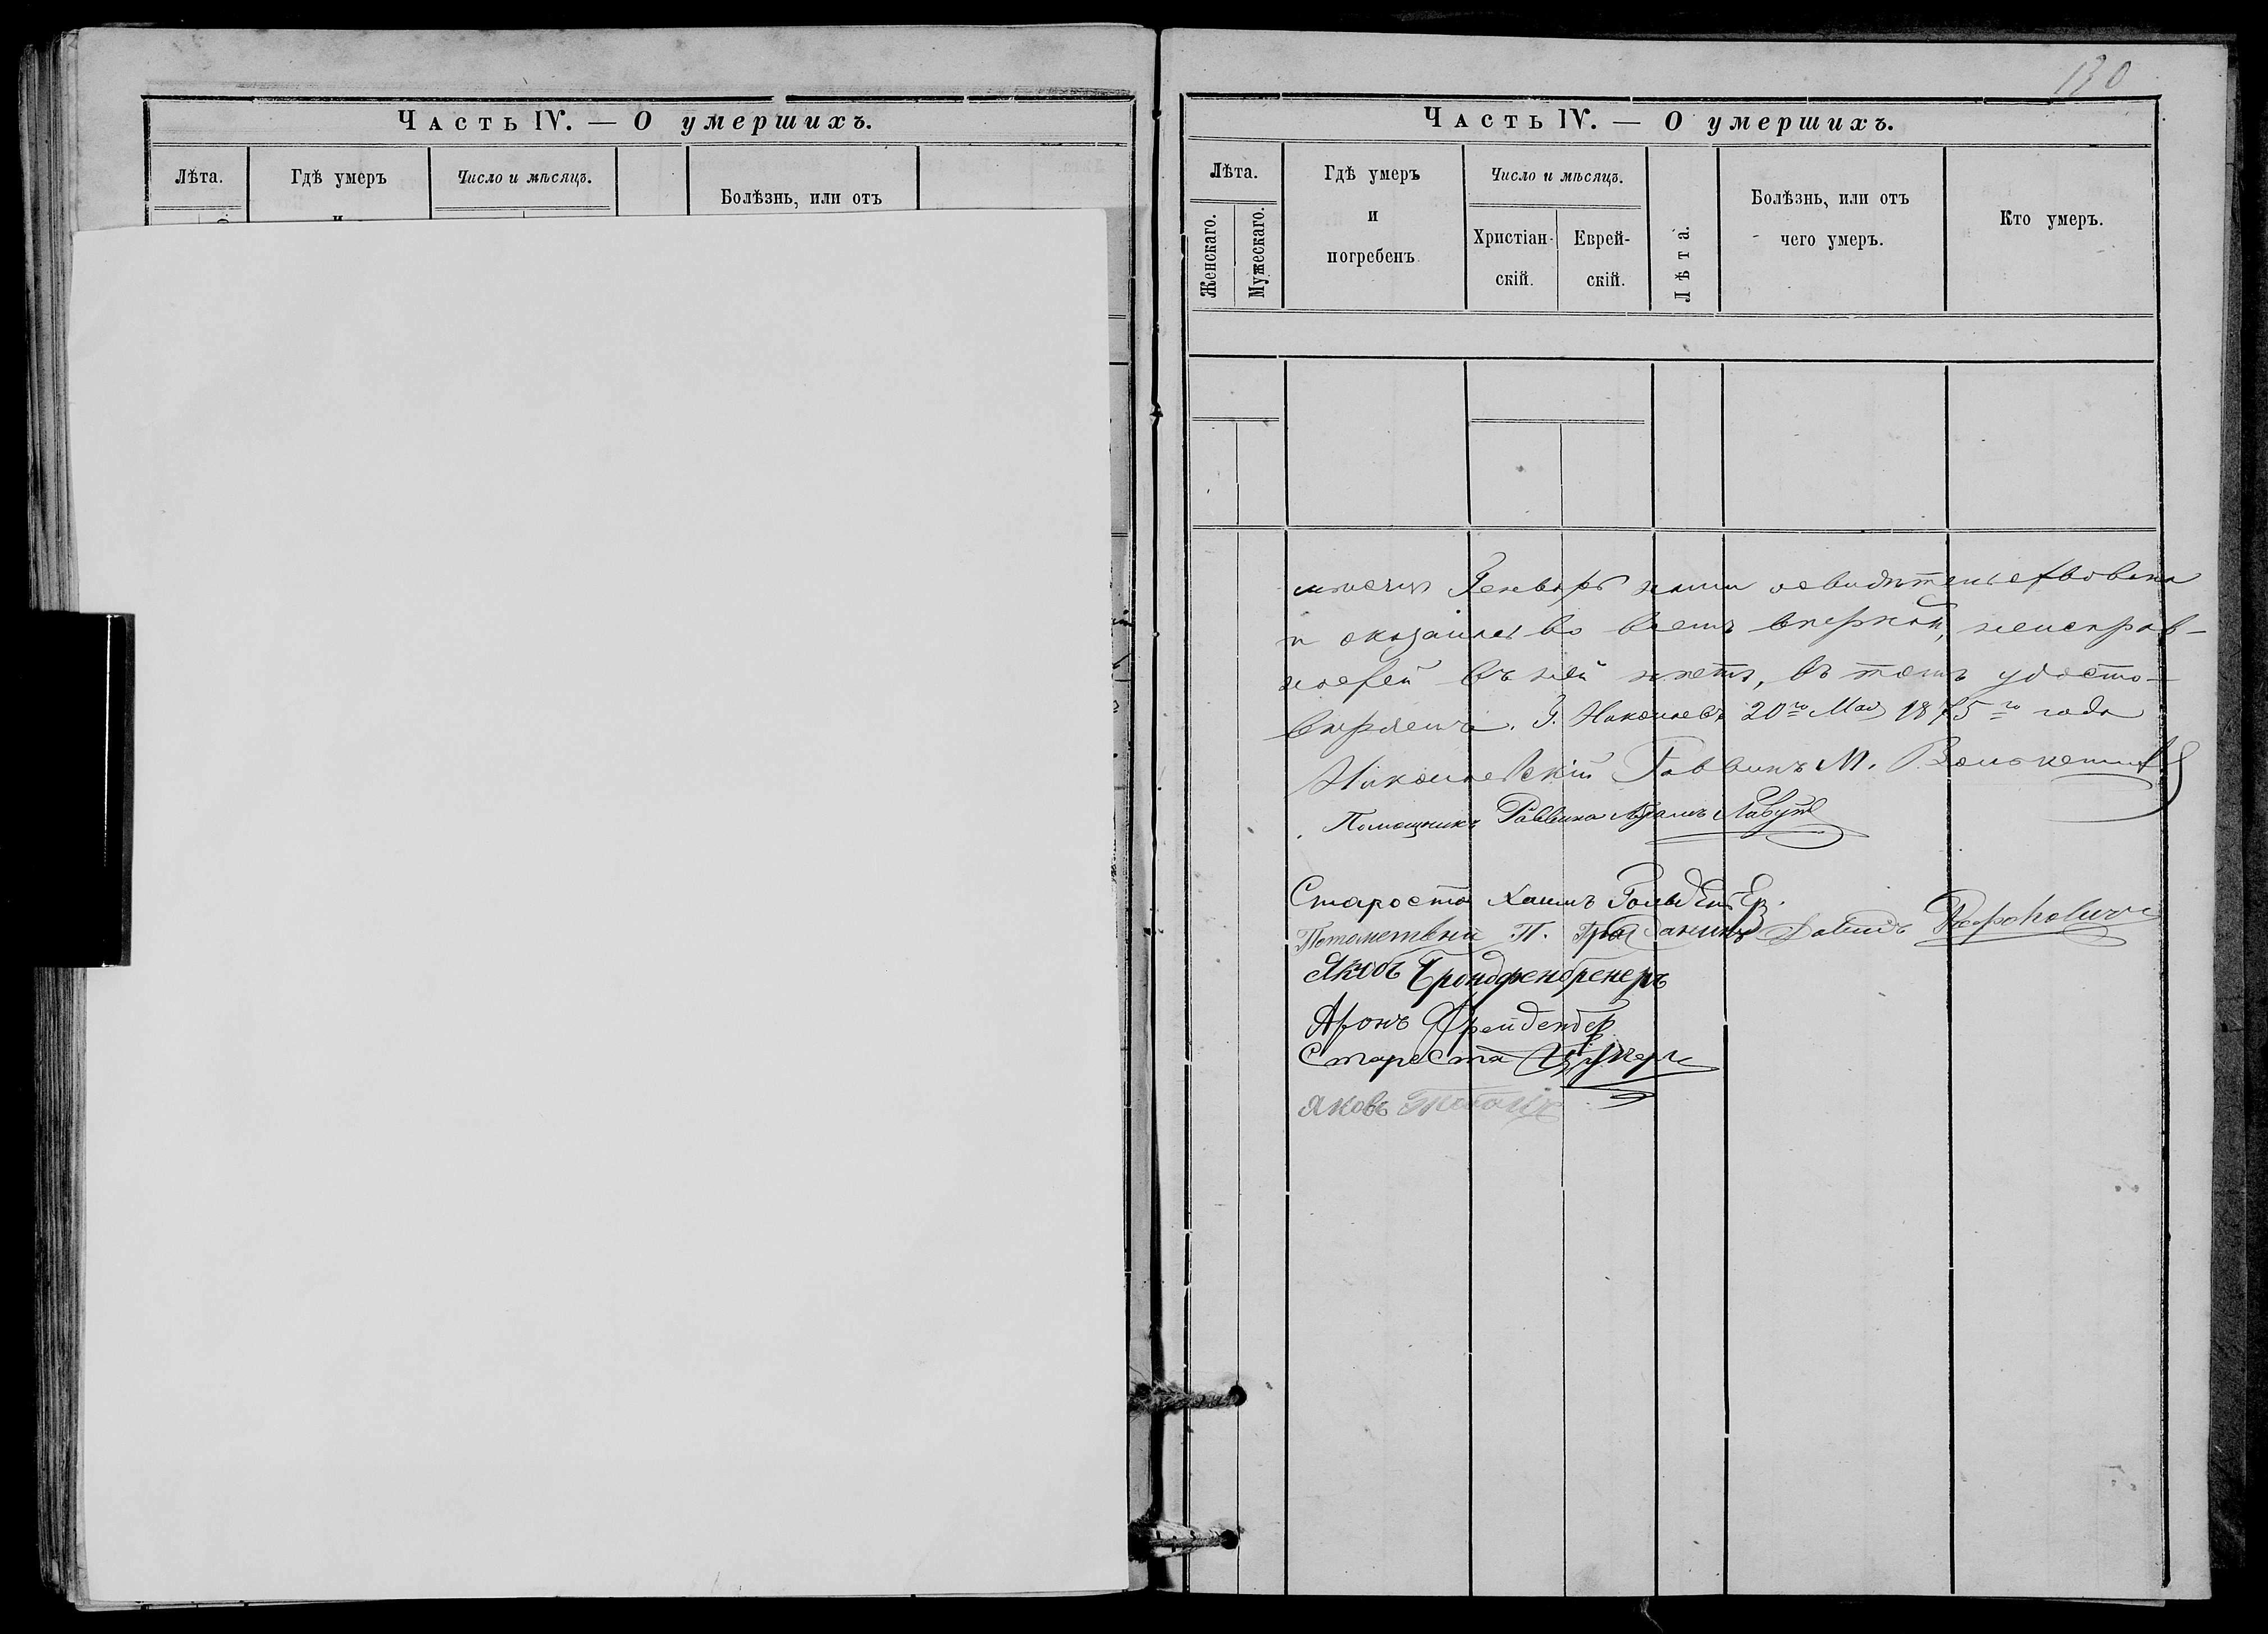 Часть IV. — О умершихъ.
Лѣта.
Гдѣ умеръ
и
Число и мѣсяцъ.
Болѣзнь, или отъ
130
Часть IV. — О умершихъ.
Лѣта.
Женскаго.
Мужескаго.
Гдѣ умеръ
и
погребенъ
Число и мѣсяцъ.
Христіан-
скій.
Еврей-
скій.
Лѣта.
Болѣзнь, или отъ
чего умеръ.
Кто умеръ.
Генварь нами освидѣтельствована
и оказалась во всемъ вѣрной, неисправ-
ностей въ ней нѣтъ, въ томъ удосто-
вѣряемъ. Г. Николаевъ 20го Мая 1875го года
Николаевскій Раввинъ М.
Помощникъ Раввина Абрамъ Лавутъ
Староста Хаимъ
П. Гражданинъ Давидъ Рафаловичъ
Яковъ Бронфенбренеръ
Аронъ
Староста
Яковъ